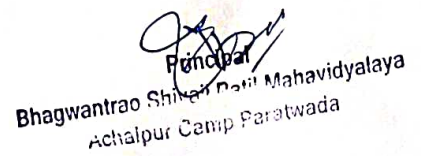 Principal
Bhagwantrao Shivaji Patil Mahavidyalaya
Achalpur Camp Paratwada